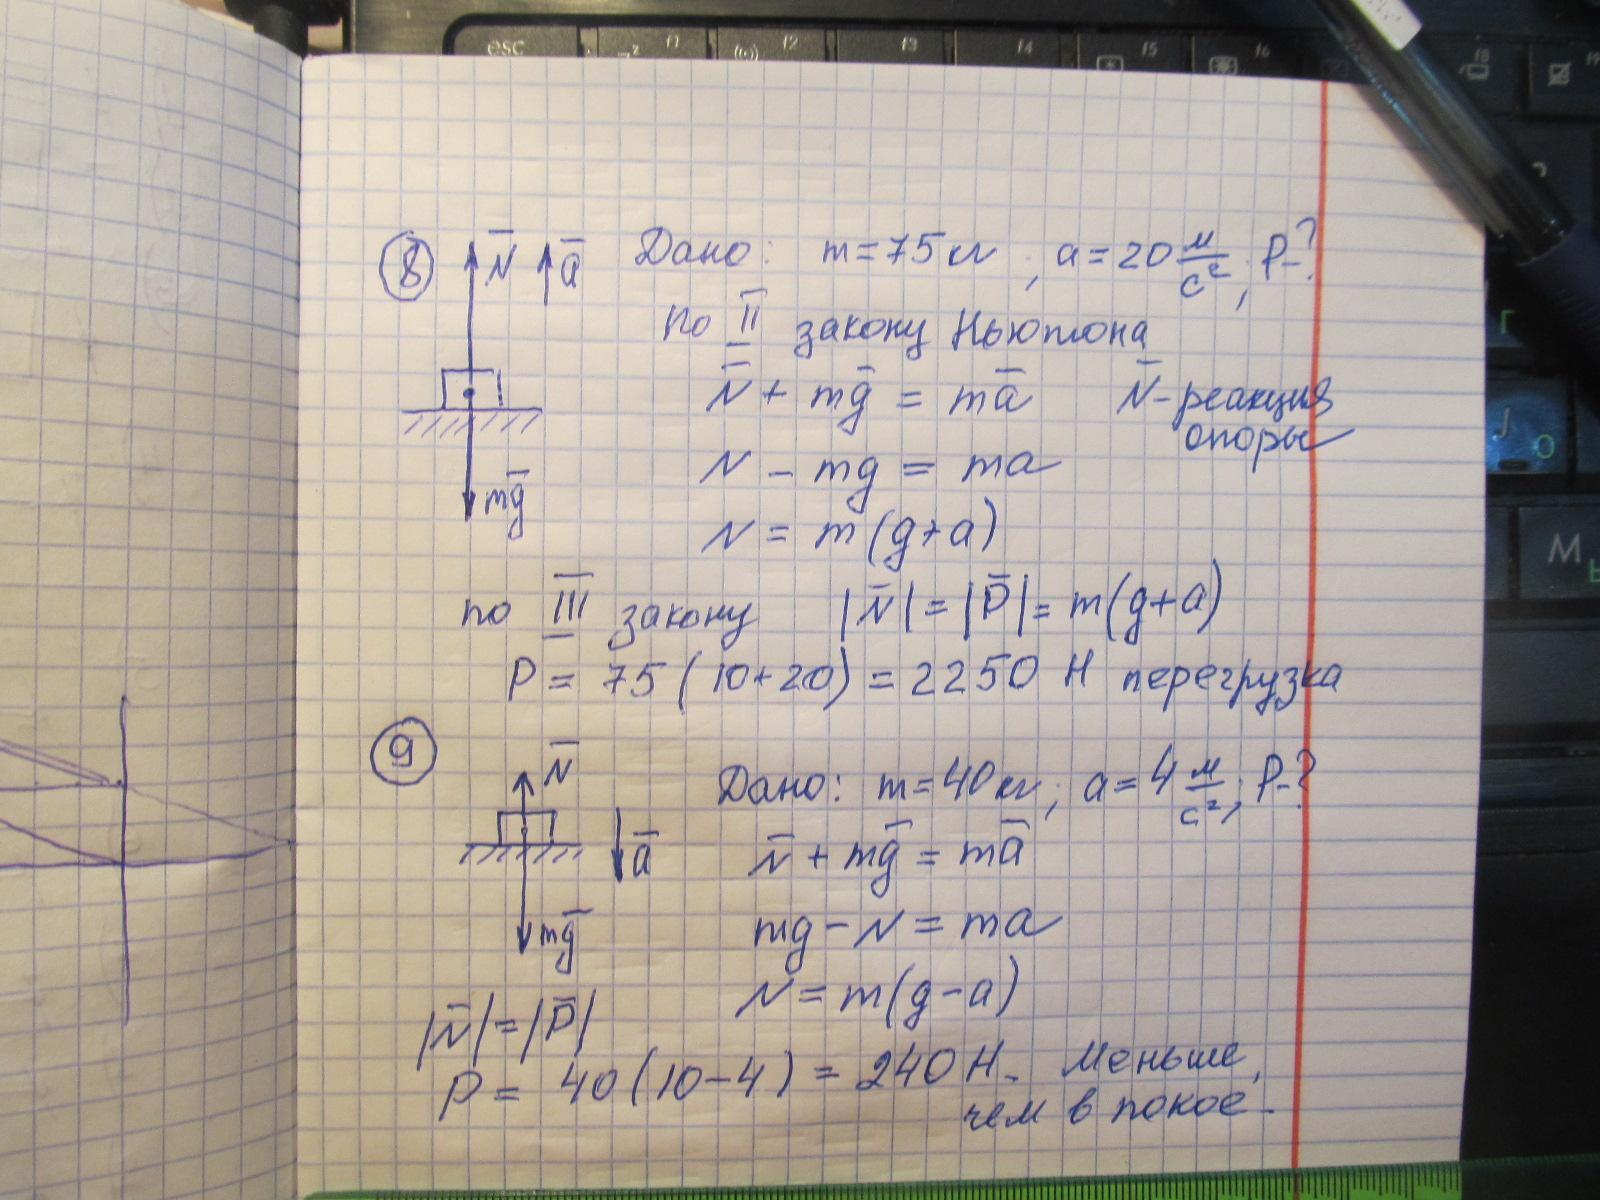 esc f1 f2 f3 f4 f5 f6 f8
⑧ N̅ a̅ Дано: m = 75 кг ; a = 20 м/с² ; P - ?
по II закону Ньютона
N̅ + mg̅ = ma̅ N̅ - реакция
опоры
N - mg = ma
mg̅
N = m(g+a)
по III закону |N̅| = |P̅| = m(g+a)
P = 75(10+20) = 2250 Н перегрузка
⑨ N̅ Дано: m = 40 кг ; a = 4 м/с² ; P - ?
a̅ N̅ + mg̅ = ma̅
mg̅ mg - N = ma
N = m(g-a)
|N̅| = |P̅|
P = 40(10-4) = 240 Н. Меньше,
чем в покое.
Г
J О
М